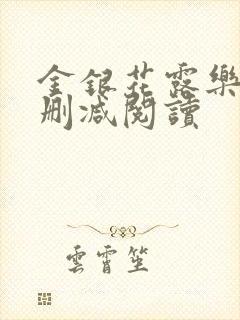 金銀花露樂
刪减閱讀
雲霄笙